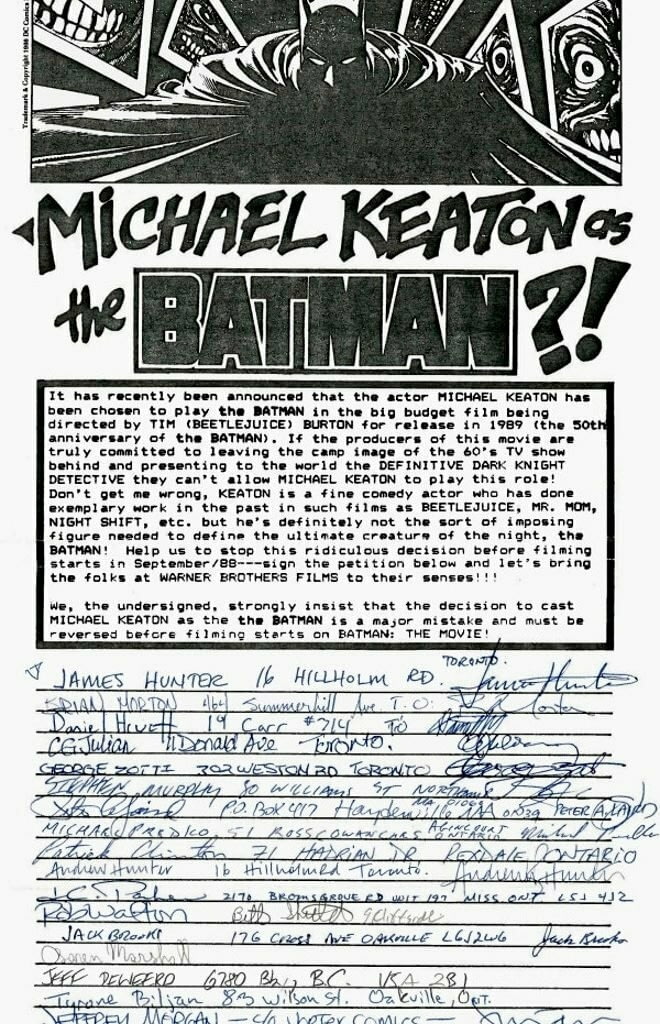 Trademark & Copyright 1988 DC Comics
MICHAEL KEATON as
the BATMAN?!
It has recently been announced that the actor MICHAEL KEATON has
been chosen to play the BATMAN in the big budget film being
directed by TIM (BEETLEJUICE) BURTON for release in 1989 (the 50th
anniversary of the BATMAN). If the producers of this movie are
truly committed to leaving the camp image of the 60's TV show
behind and presenting to the world the DEFINITIVE DARK KNIGHT
DETECTIVE they can't allow MICHAEL KEATON to play this role!
Don't get me wrong, KEATON is a fine comedy actor who has done
exemplary work in the past in such films as BEETLEJUICE, MR. MOM,
NIGHT SHIFT, etc. but he's definitely not the sort of imposing
figure needed to define the ultimate creature of the night, the
BATMAN! Help us to stop this ridiculous decision before filming
starts in September/88---sign the petition below and let's bring
the folks at WARNER BROTHERS FILMS to their senses!!!
We, the undersigned, strongly insist that the decision to cast
MICHAEL KEATON as the the BATMAN is a major mistake and must be
reversed before filming starts on BATMAN: THE MOVIE!
JAMES HUNTER 16 HILLHOLM RD. TORONTO. James Hunter
BRIAN MORTON 464 Summerhill Ave. T.O.
Daniel 19 Carr #714 TO
CG Julian 11 Donald Ave Toronto.
GEORGE ZOTTI 202 WESTON RD TORONTO
STEPHEN MURPHY 30 WILLIAMS ST
P.O. BOX 417 Haydenville MA 01039 PETER A. LAIRD
51 ROSSCOWAN CRES AGINCOURT ONTARIO
71 HADRIAN DR REXDALE ONTARIO
Andrew Hunter 16 Hillholm Rd Toronto. Andrew Hunter
J.C. 2170 BROMSGROVE RD UNIT 197 MISS. ONT L5J 4J2
Rob Walton Beth
JACK BROOKS 176 CROSS AVE OAKVILLE L6J2W6 Jack Brooks
Marshall
JEFF 6780 B.C. V5A 2B1
Tyrone Biljan 83 Wilson St. Oakville, Ont.
JEFFREY MORGAN - c/o VORTEX COMICS -